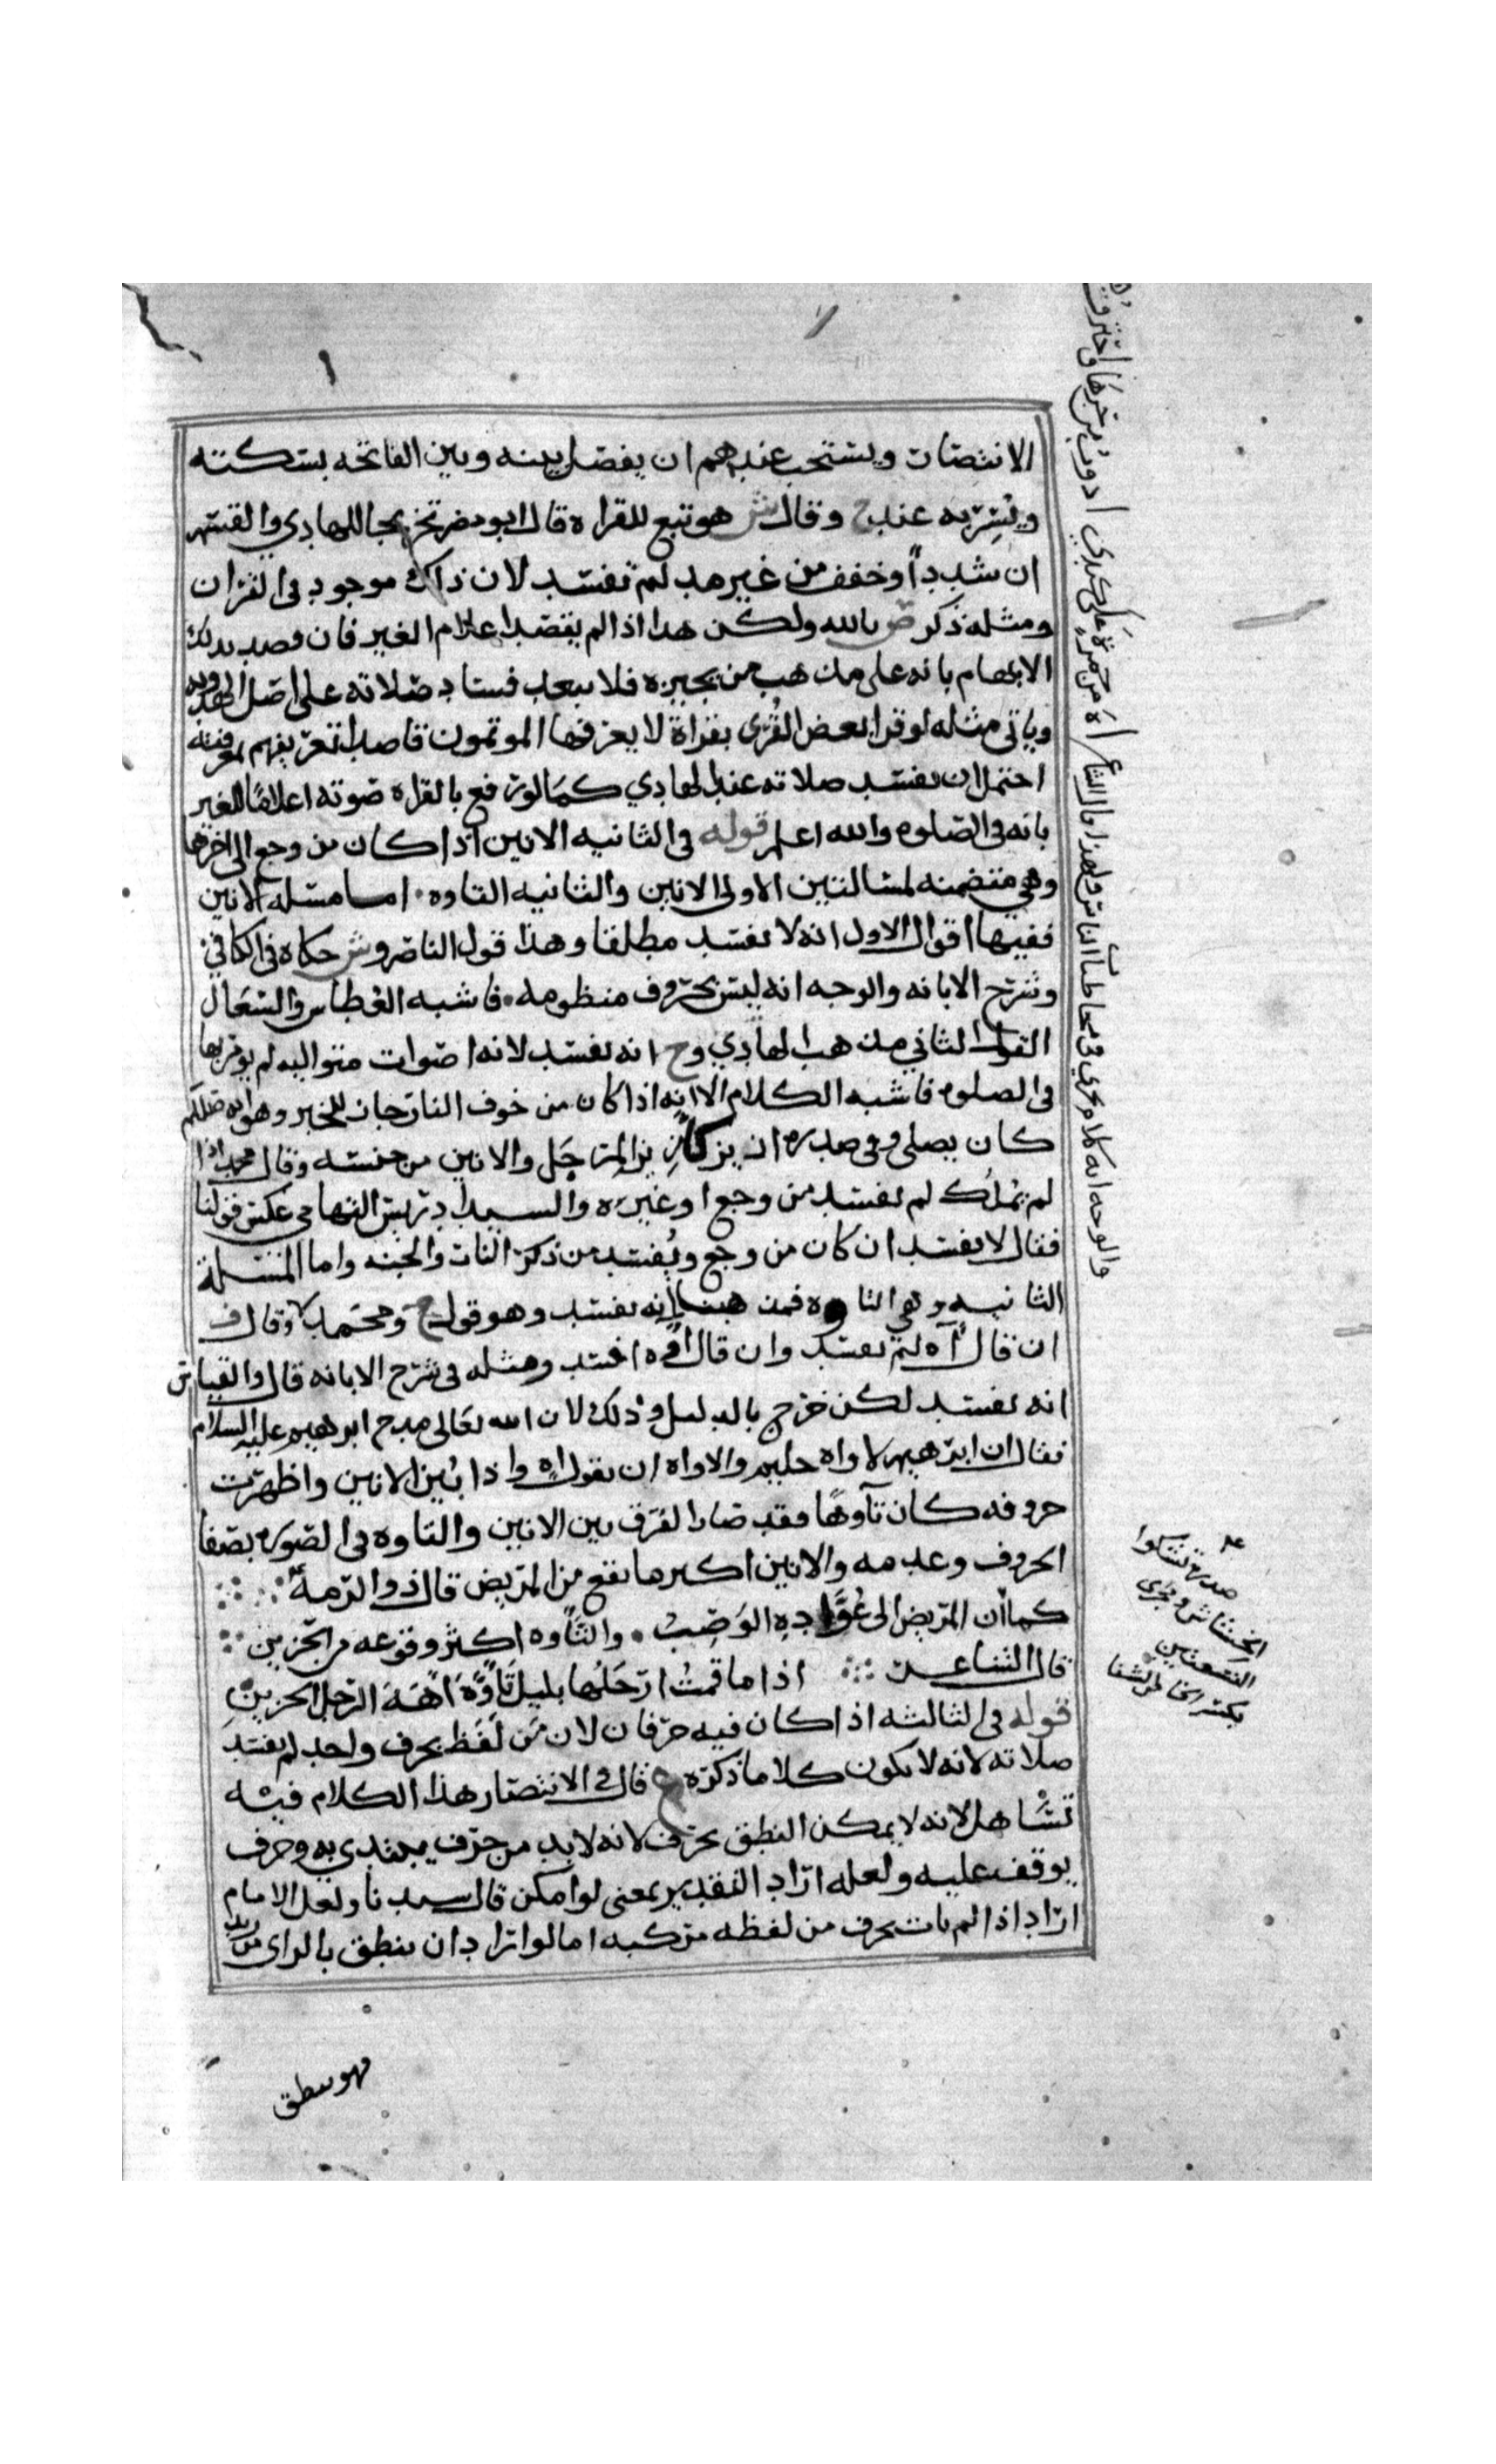 الانتصار ويستحب عندهم ان يفصل بينه وبين الفاتحه بسكته
ويُسِرّ به عند ح وقال ش هو تبع للقراه قال ابو مضر تخريجا للهادي والقسم
ان شدد أو خفف من غير مد لم تفسد لان ذلك موجود في القران
ومثله ذكر ص بالله ولكن هذا اذا لم يقصد اعلام الغير فان قصد بذلك
الايهام بانه على مذهب من يجيزه فلا يبعد فساد صلاته على اصل
وياتي مثله لو قرا بعض القُرّى بقراة لا يعرفها الموتمون قاصدا تعريفهم بمعرفته
احتمل ان تفسد صلاته عند الهادي كما لو رفع بالقراه صوته اعلاما للغير
بانه في الصلوه والله اعلم قوله في الثانيه الانين اذا كان من وجع الى اخرها
وهي متضمنه لمسالتين الاولى الانين والثانيه التاوه اما مسله الانين
ففيها اقوال الاول انه لا تفسد مطلقا وهذا قول الناصر وش حكاه في الكافي
وشرح الابانه والوجه انه ليس بحروف منظومه فاشبه العطاس والسعال
القول الثاني مذهب الهادي وح انه تفسد لانه اصوات متواليه لم يوذن بها
في الصلوه فاشبه الكلام الا انه اذا كان من خوف النار جاز للخبر وهو انه صلم
كان يصلي وفي صدره ازيز كازيز المِرجَل والانين من جنسه وقال محمد اذا
لم يملك لم تفسد من وجع او غيره والسيد ادريس التهامي عكس قولنا
فقال لا تفسد ان كان من وجع ويُفسد من ذكر النار والجنه واما المسلة
الثانيه وهي التاوه فمذهبنا انه تفسد وهو قول ح ومحمد وقال ف
ان قال آه لم تفسد وان قال اوّه افسد ومثله في شرح الابانه قال والقياس
انه تفسد لكن خرج بالدليل وذلك لان الله تعالى مدح ابرهيم عليه السلام
فقال ان ابرهيم لاواه حليم والاواه ان يقول اه واذا بُين الانين واظهرت
حروفه كان تآوهًا فقد صار الفرق بين الانين والتاوه في الصوره بصفا
الحروف وعدمه والانين اكثر ما يقع من المريض قال ذو الرمة
كما أن المريض الى عُوَّادِهِ الوَصِبُ والتَّاوه اكثر وقوعه من الحزين
قال الشاعر اذا ما قمتُ ارحَلُها بليل تَأوَّهُ آهَةَ الرجل الحزينِ
قوله في الثالثه اذا كان فيه حرفان لان مَن لَفَظ بحرف واحد لم تفسد
صلاته لانه لا يكون كلاما ذكره ع قال في الانتصار هذا الكلام فيه
تساهل لانه لا يمكن النطق بحرف لانه لا بد من حرف يبتدي به وحرف
يوقف عليه ولعله اراد التقدير بمعنى لو امكن قال سيدنا ولعل الامام
اراد اذا لم يات بحرف من لفظه مركبه اما لو اراد ان ينطق بالراي من زيد
فهو ينطق
والوجه انه كلام يجري في مخاطبات الناس ولهذا قال الشاعر
اه من جمرة على كبدي
صدره تشكوا
الخشاش ومجرى
النسعتين
بكسر الخا والشنا